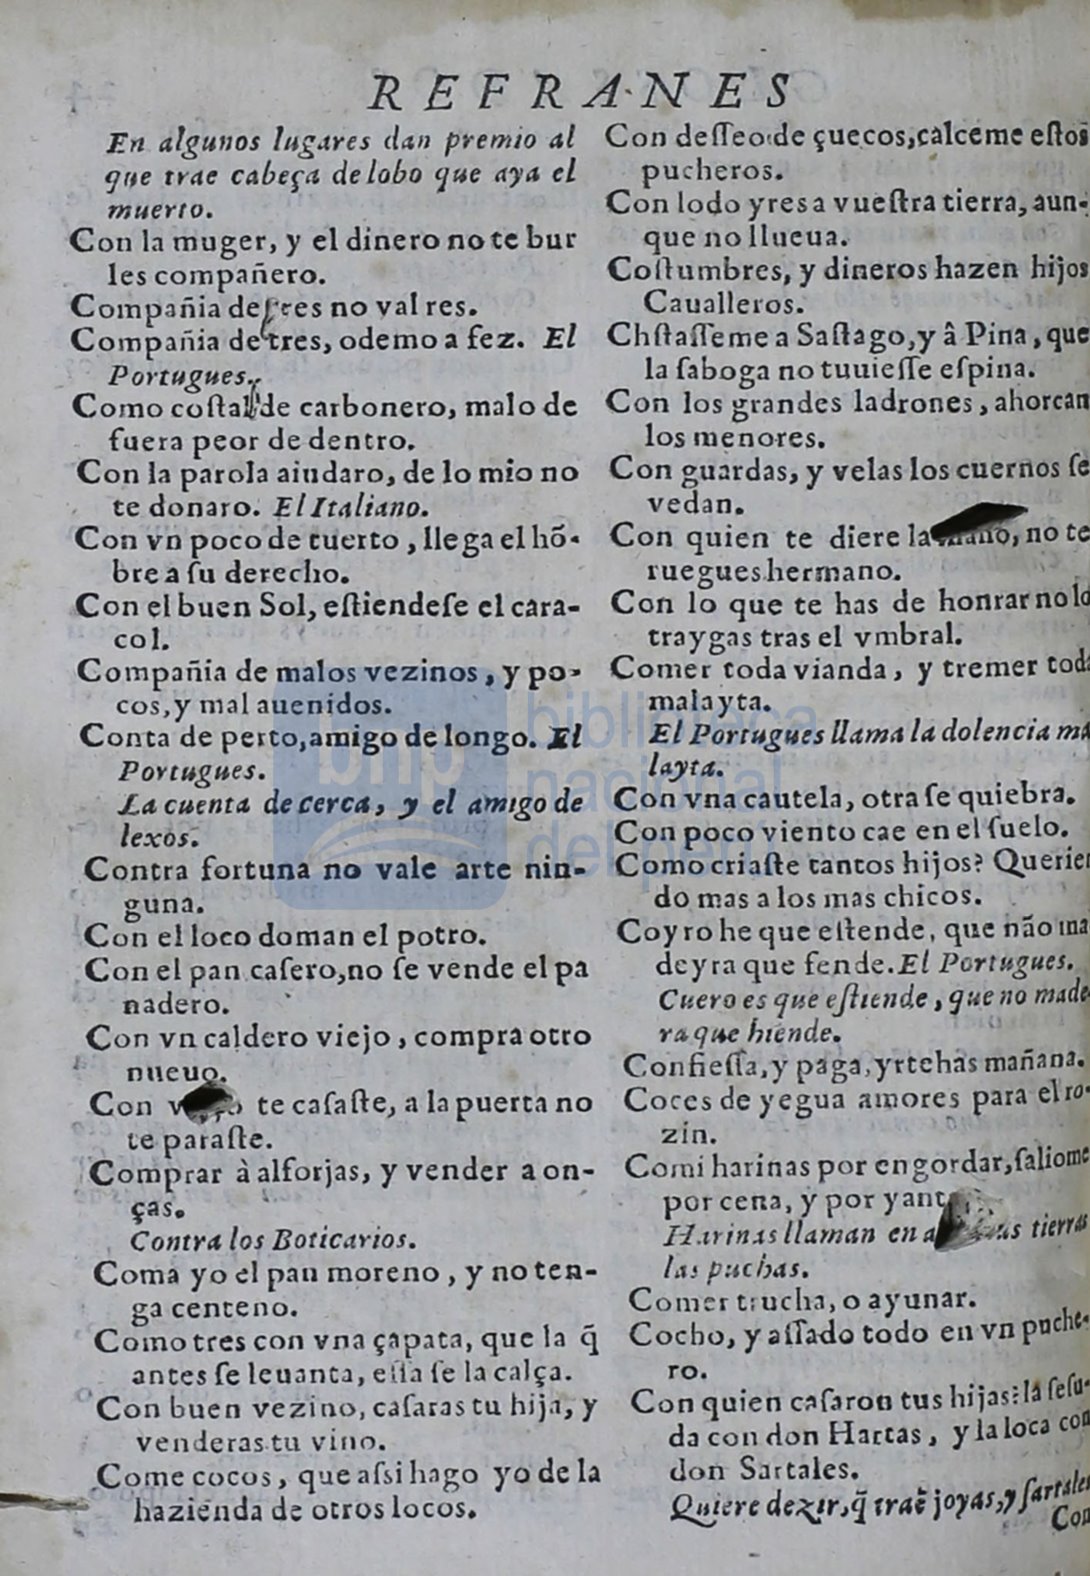 REFRANES
En algunos lugares dan premio al
que trae cabeça de lobo que aya el
muerto.
Con la muger, y el dinero no te bur
les compañero.
Compañia de tres no val res.
Compañia de tres, odemo a fez. El
Portugues.
Como costal de carbonero, malo de
fuera peor de dentro.
Con la parola aiudaro, de lo mio no
te donaro. El Italiano.
Con vn poco de tuerto, llega el hõ-
bre a ſu derecho.
Con el buen Sol, eſtiendeſe el cara-
col.
Compañia de malos vezinos, y po-
cos, y mal auenidos.
Conta de perto, amigo de longo. El
Portugues.
La cuenta de cerca, y el amigo de
lexos.
Contra fortuna no vale arte nin-
guna.
Con el loco doman el potro.
Con el pan caſero, no ſe vende el pa
nadero.
Con vn caldero viejo, compra otro
nueuo.
Con te caſaſte, a la puerta no
te paraſte.
Comprar à alforjas, y vender a on-
ças.
Contra los Boticarios.
Coma yo el pan moreno, y no ten-
ga centeno.
Como tres con vna çapata, que la q̃
antes ſe leuanta, eſſa ſe la calça.
Con buen vezino, caſaras tu hija, y
venderas tu vino.
Come cocos, que aſsi hago yo de la
hazienda de otros locos.
Con deſſeo de çuecos, calceme eſtos
pucheros.
Con lodo yres a vueſtra tierra, aun-
que no llueua.
Coſtumbres, y dineros hazen hijos
Caualleros.
Chſtaſſeme a Saſtago, y â Pina, que
la ſaboga no tuuieſſe eſpina.
Con los grandes ladrones, ahorcan
los menores.
Con guardas, y velas los cuernos ſe
vedan.
Con quien te diere la mano, no te
ruegues hermano.
Con lo que te has de honrar no lo
traygas tras el vmbral.
Comer toda vianda, y tremer toda
malayta.
El Portugues llama la dolencia ma
layta.
Con vna cautela, otra ſe quiebra.
Con poco viento cae en el ſuelo.
Como criaſte tantos hijos? Querien
do mas a los mas chicos.
Coyro he que eſtende, que não ma
deyra que fende. El Portugues.
Cuero es que eſtiende, que no made-
ra que hiende.
Confieſſa, y paga, yrtehas mañana.
Coces de yegua amores para el ro-
zin.
Comi harinas por engordar, ſaliome
por cena, y por
Harinas llaman en tierras
las puchas.
Comer trucha, o ayunar.
Cocho, y aſſado todo en vn puche-
ro.
Con quien caſaron tus hijas? la ſeſu-
da con don Hartas, y la loca con
don Sartales.
Quiere dezir, q̃ traẽ joyas, y ſartales
Con